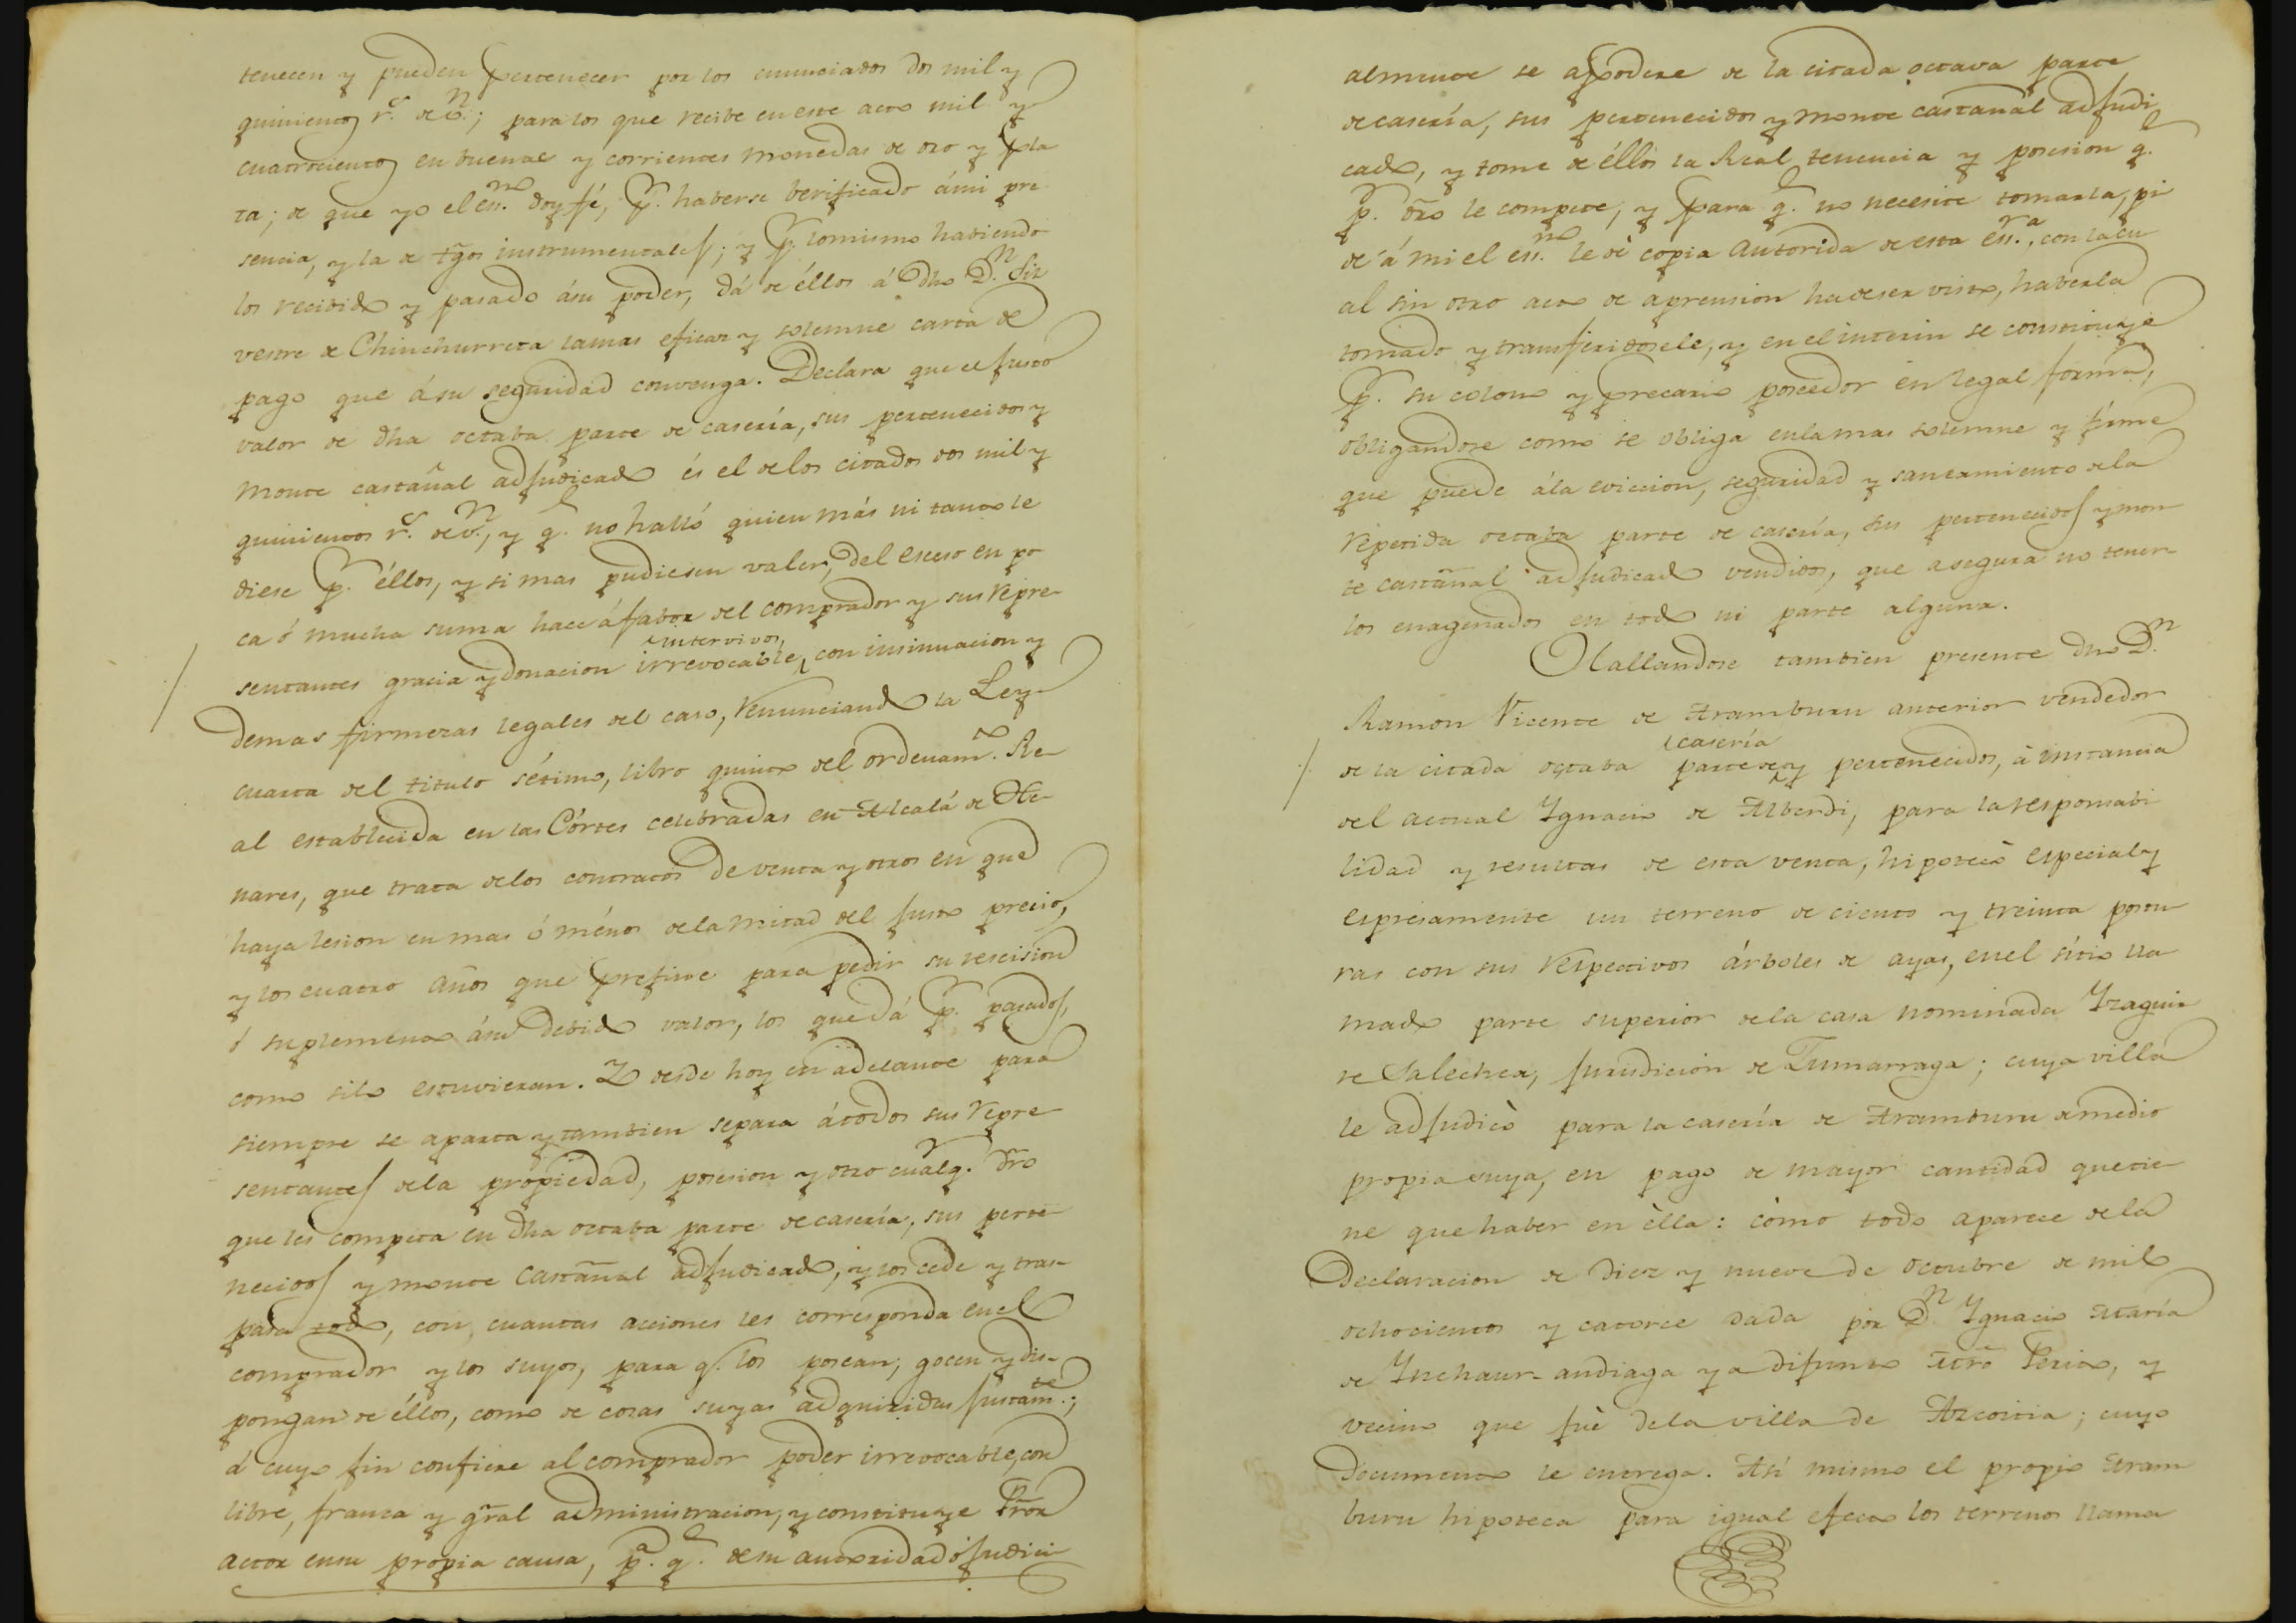 tenecen y pueden pertenecer por los enunciados dos mil y
quinientos r.s de v.n; para los que recibe en este acto mil y
cuatrocientos en buenas y corrientes monedas de oro y pla
ta; de que yo el ess.no doy fé, p.r haberse berificado ámi pre
sencia, y la de tg̃os instrumentales; y p.r lo mismo habiendo
los recibido y pasado ásu poder, dá de éllos á dho D.n Sil
vestre de Chinchurreta la mas eficaz y solemne carta de
pago que ásu seguridad convenga. Declara que el justo
valor de dha octaba parte de casería, sus pertenecidos y
monte castañal adjudicado és el de los citados dos mil y
quinientos r.s de v.n, y q.e no halló quien más ni tanto le
diese p.r éllos, y si mas pudiesen valer, del esceso en po
ca ó mucha suma hace áfabor del comprador y sus repre-
sentantes gracia y donacion irrevocable intervivos, con insinuacion y
demas firmezas legales del caso, renunciando la Ley
cuarta del titulo sétimo, libro quinto del ordenam.to Re-
al establecida en las Córtes celebradas en Alcalá de He-
nares, que trata delos contratos de venta y otros en que
haya lesion en mas ó ménos dela mitad del justo precio,
y los cuatro años que prefine para pedir su rescision
ó suplemento ásu debido valor, los que dá p.r pasados,
como silo estuvieran. Y desde hoy en adelante para
siempre se aparta y tambien separa átodos sus repre
sentantes dela propiedad, posesion y otro cualq.r dr̃o
que les competa en dha octaba parte de casería, sus perte
necidos y monte castañal adjudicado, y los cede y tras-
pasa todo, con cuantas acciones les corresponda en el
comprador y los suyos, para q.e los posean, gocen y dis-
pongan de éllos, como de cosas suyas adquiridas justam.te;
á cuyo fin confiere al comprador poder irrevocable, con
libre, franca y gr̃al administracion, y constituye Pr̃or
actor ensu propia causa, p.a q.e desu autoridad ó judici
almente se apodere de la citada octava parte
de casería, sus pertenecidos y monte castañal adjudi
cado, y tome de éllos la Real tenencia y posesion q.e
p.r dr̃o le compete, y para q.e no necesite tomarla, pi
de á mi el ess.no le dè copia autorida de esta ess.ra, con la cu
al sin otro acto de aprension ha de ser visto, haberla
tomado y transferidosele, y en el interin se constituye
p.r su colono y precario poseedor en legal forma,
obligandose como se obliga enla mas solemne y firme
que puede ála eviccion, seguridad y saneamiento dela
repetida octaba parte de casería, sus pertenecidos y mon
te castañal adjudicado vendidos, que asegura no tener-
los enagenados en todo ni parte alguna.
Hallandose tambien presente dho D.n
Ramon Vicente de Aramburu anterior vendedor
de la citada octaba parte de casería y pertenecidos, à instancia
del actual Ygnacio de Alberdi, para la responsabi
lidad y resultas de esta venta, hipotecò especial y
espresamente un terreno de ciento y treinta postu
ras con sus respectivos árboles de ayas, enel sítio lla
mado parte superior dela casa nominada Yzaguir
re Salechea, jurisdicion de Zumarraga; cuya villa
le adjudicò para la casería de Aramburu de medio
propia suya, en pago de mayor cantidad que tie-
ne que haber en èlla: còmo todo aparece dela
Declaracion de diez y nueve de octubre de mil
ochocientos y catorce dada por D.n Ygnacio María
de Ynchaur-andiaga ya difunto Mr̃o Perito, y
vecino que fuè dela villa de Azcoitia; cuyo
documento le entrega. Asi mismo el propio Aram
buru hipoteca para igual efecto los terrenos llama